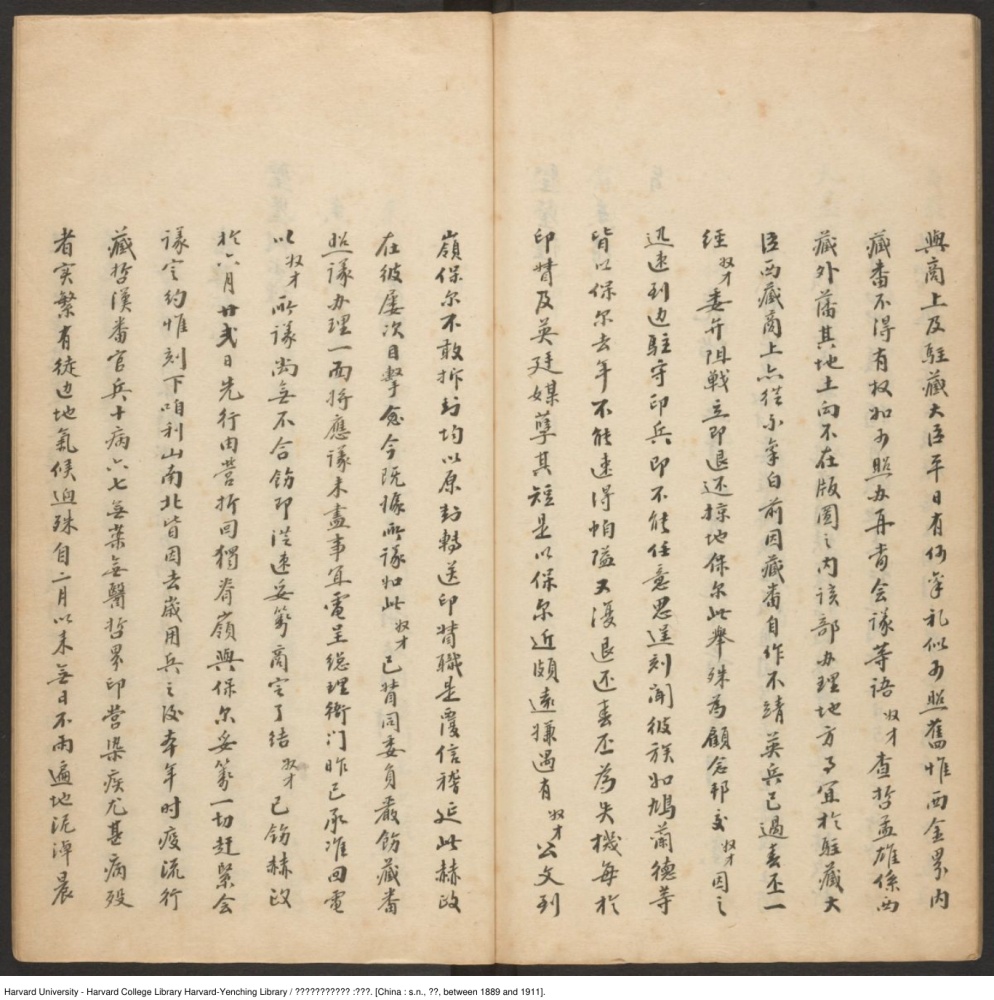 與商上及駐藏大臣平日有何稟礼似可照舊惟西金界内
藏番不得有权如可照办再當会議等語奴才查哲孟雄係西
藏外藩其地土向不在版圖之内該部办理地方事宜於駐藏大
臣西藏商上亦從不稟白前因藏番自作不靖英兵已過春丕一
經奴才委弁阻戰立即退还掠地保尔此舉殊為顧念邦交奴才因之
迅速到边駐守印兵即不能任意思逞刻聞彼族如鳩蘭德等
皆以保尔去年不能速得帕隘又復退还春丕為失機每於
印督及英廷媒孽其短是以保尔近頗遠嫌遇有奴才公文到
嶺保尔不敢拆封均以原封轉送印督職是覆信稽延此赫政
在彼屢次目擊念今既據所議如此奴才已督同委員嚴飭藏番
照議办理一面將應議未盡事宜電呈總理衙门昨已承准回電
以奴才所議尚無不合飭即從速妥籌商定了結奴才已飭赫政
於六月廿弍日先行由營折回獨脊嶺與保尔妥籌一切赶緊会
議定約惟刻下咱利山南北皆因去歲用兵之後本年时疫流行
藏哲漢番官兵十病六七無藥無醫哲界印營染疾尤甚病殁
者实繁有徒边地氣候迥殊自二月以来無日不雨遍地泥淖晨
Harvard University - Harvard College Library Harvard-Yenching Library / ??????????? :???. [China : s.n., ??, between 1889 and 1911].